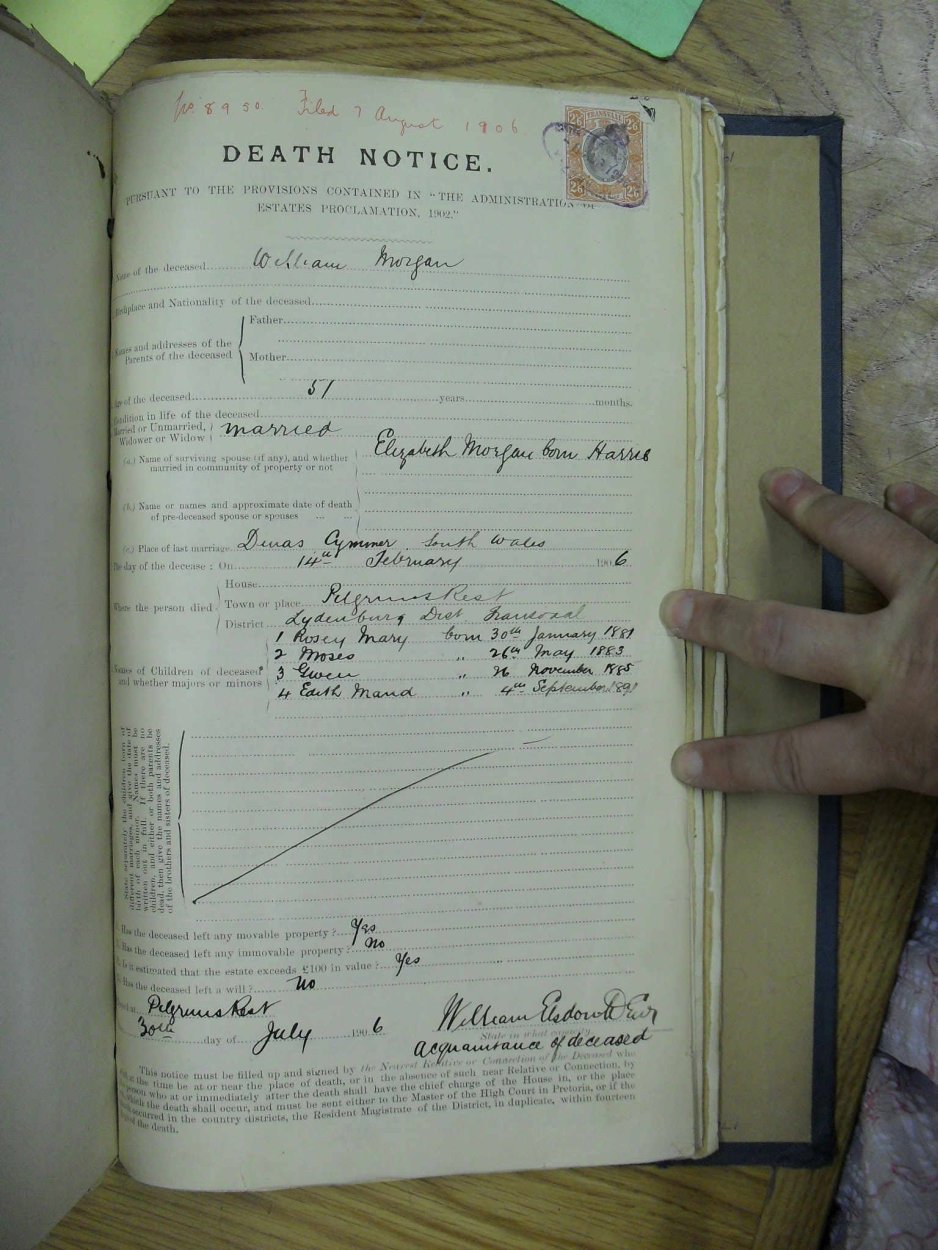 No. 8950. Filed 7 August 1906
TRANSVAAL
2/6 2/6
DEATH NOTICE.
PURSUANT TO THE PROVISIONS CONTAINED IN "THE ADMINISTRATION OF
ESTATES PROCLAMATION, 1902."
Name of the deceased William Morgan
Birthplace and Nationality of the deceased
Names and addresses of the Parents of the deceased
Father
Mother
Age of the deceased 51 years months.
Condition in life of the deceased
Married or Unmarried, Widower or Widow married
(a.) Name of surviving spouse (if any), and whether married in community of property or not Elizabeth Morgan born Harris
(b.) Name or names and approximate date of death of pre-deceased spouse or spouses ... ...
(c.) Place of last marriage Dinas Cymmer South Wales
The day of the decease: On 14th February 1906
Where the person died
House
Town or place Pilgrims Rest
District Lydenburg Dist Transvaal
Names of Children of deceased and whether majors or minors
1 Rosey Mary born 30th January 1881
2 Moses " 26th May 1883
3 Gwen " 26 November 1885
4 Edith Maud " 4th September 1891
State separately the children born of
different marriages, and give the date of
birth of each minor. Names must be
written out in full. If there are no
children, and either or both parents be
dead, then give the names and addresses
of the brothers and sisters of deceased.
Has the deceased left any movable property? Yes
Has the deceased left any immovable property? no
Is it estimated that the estate exceeds £100 in value? Yes
Has the deceased left a will? no
Dated at Pilgrims Rest
30th day of July 1906
William Elsdon
State in what capacity.
Acquaintance of deceased
This notice must be filled up and signed by the Nearest Relative or Connection of the Deceased who
at the time be at or near the place of death, or in the absence of such near Relative or Connection, by
person who at or immediately after the death shall have the chief charge of the House in, or the place
which the death shall occur, and must be sent either to the Master of the High Court in Pretoria, or if the
occurred in the country districts, the Resident Magistrate of the District, in duplicate, within fourteen
of the death.